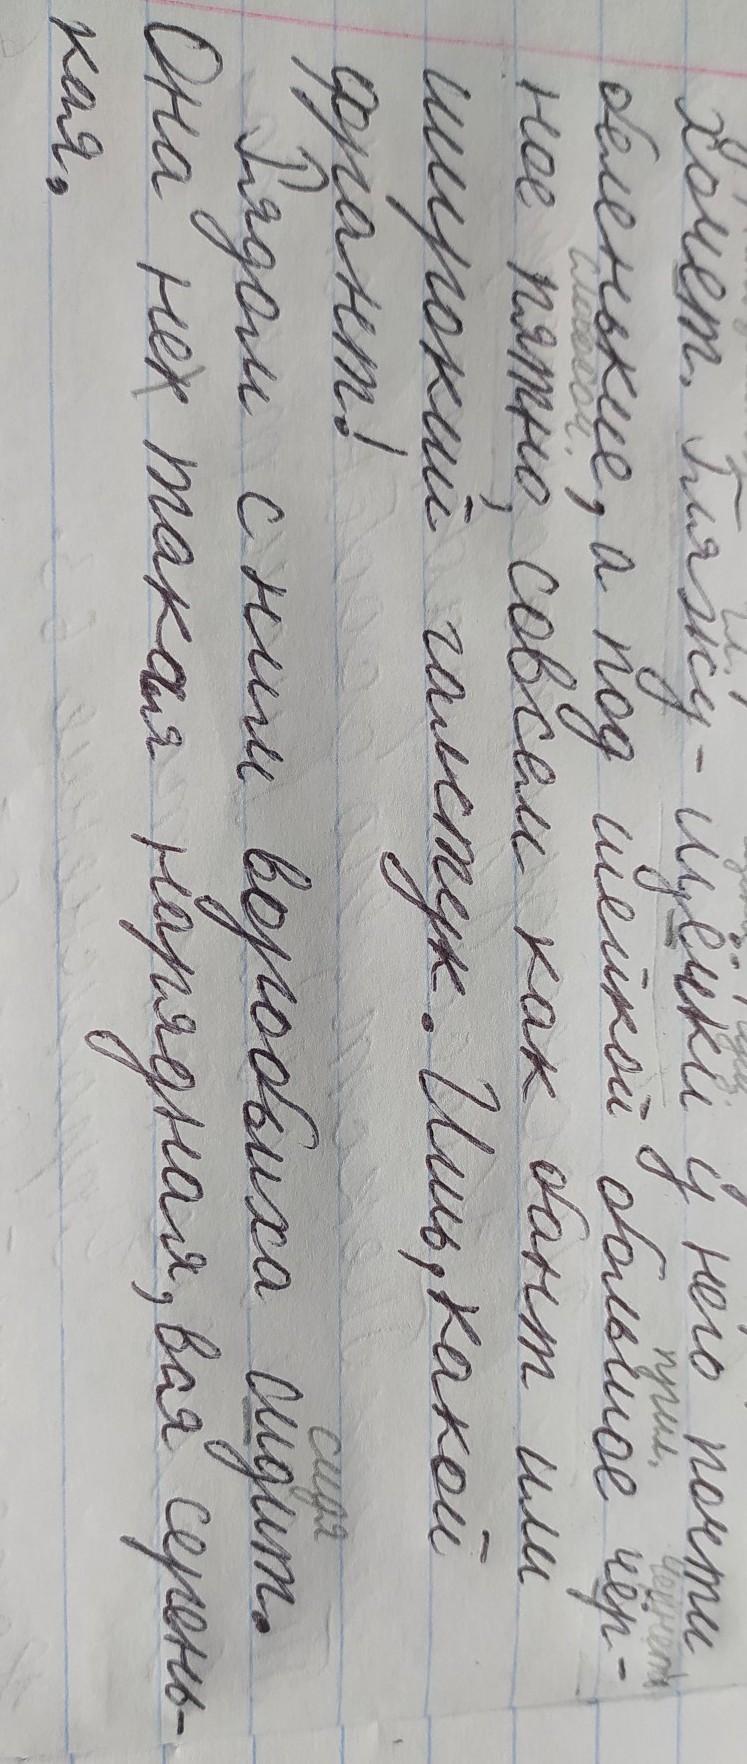 хочет. Гляжу - щёчки у него почти
прил.
беленькие, а под шейкой большое чёр-
ное пятно, совсем как бант или
широкий галстук. Ишь, какой
франт!
сидя
Рядом с ним воробьиха сидит.
Она не такая нарядная, вся серень-
кая.